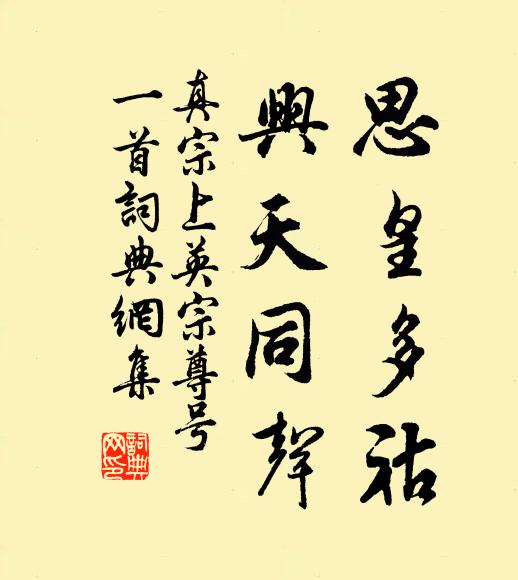 思皇多祜
興天同聲
真宗上英宗尊号
一首詞典網集
詞典网印